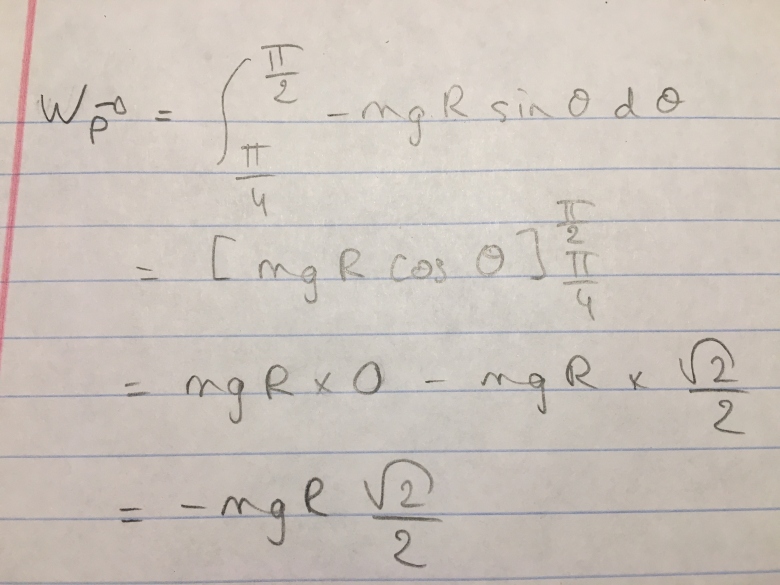 W_{\vec{P}} = \int_{\frac{\pi}{4}}^{\frac{\pi}{2}} -mgR sin θ dθ
= [mgR cos θ]_{\frac{\pi}{4}}^{\frac{\pi}{2}}
= mgR × 0 - mgR × \frac{\sqrt{2}}{2}
= -mgR \frac{\sqrt{2}}{2}